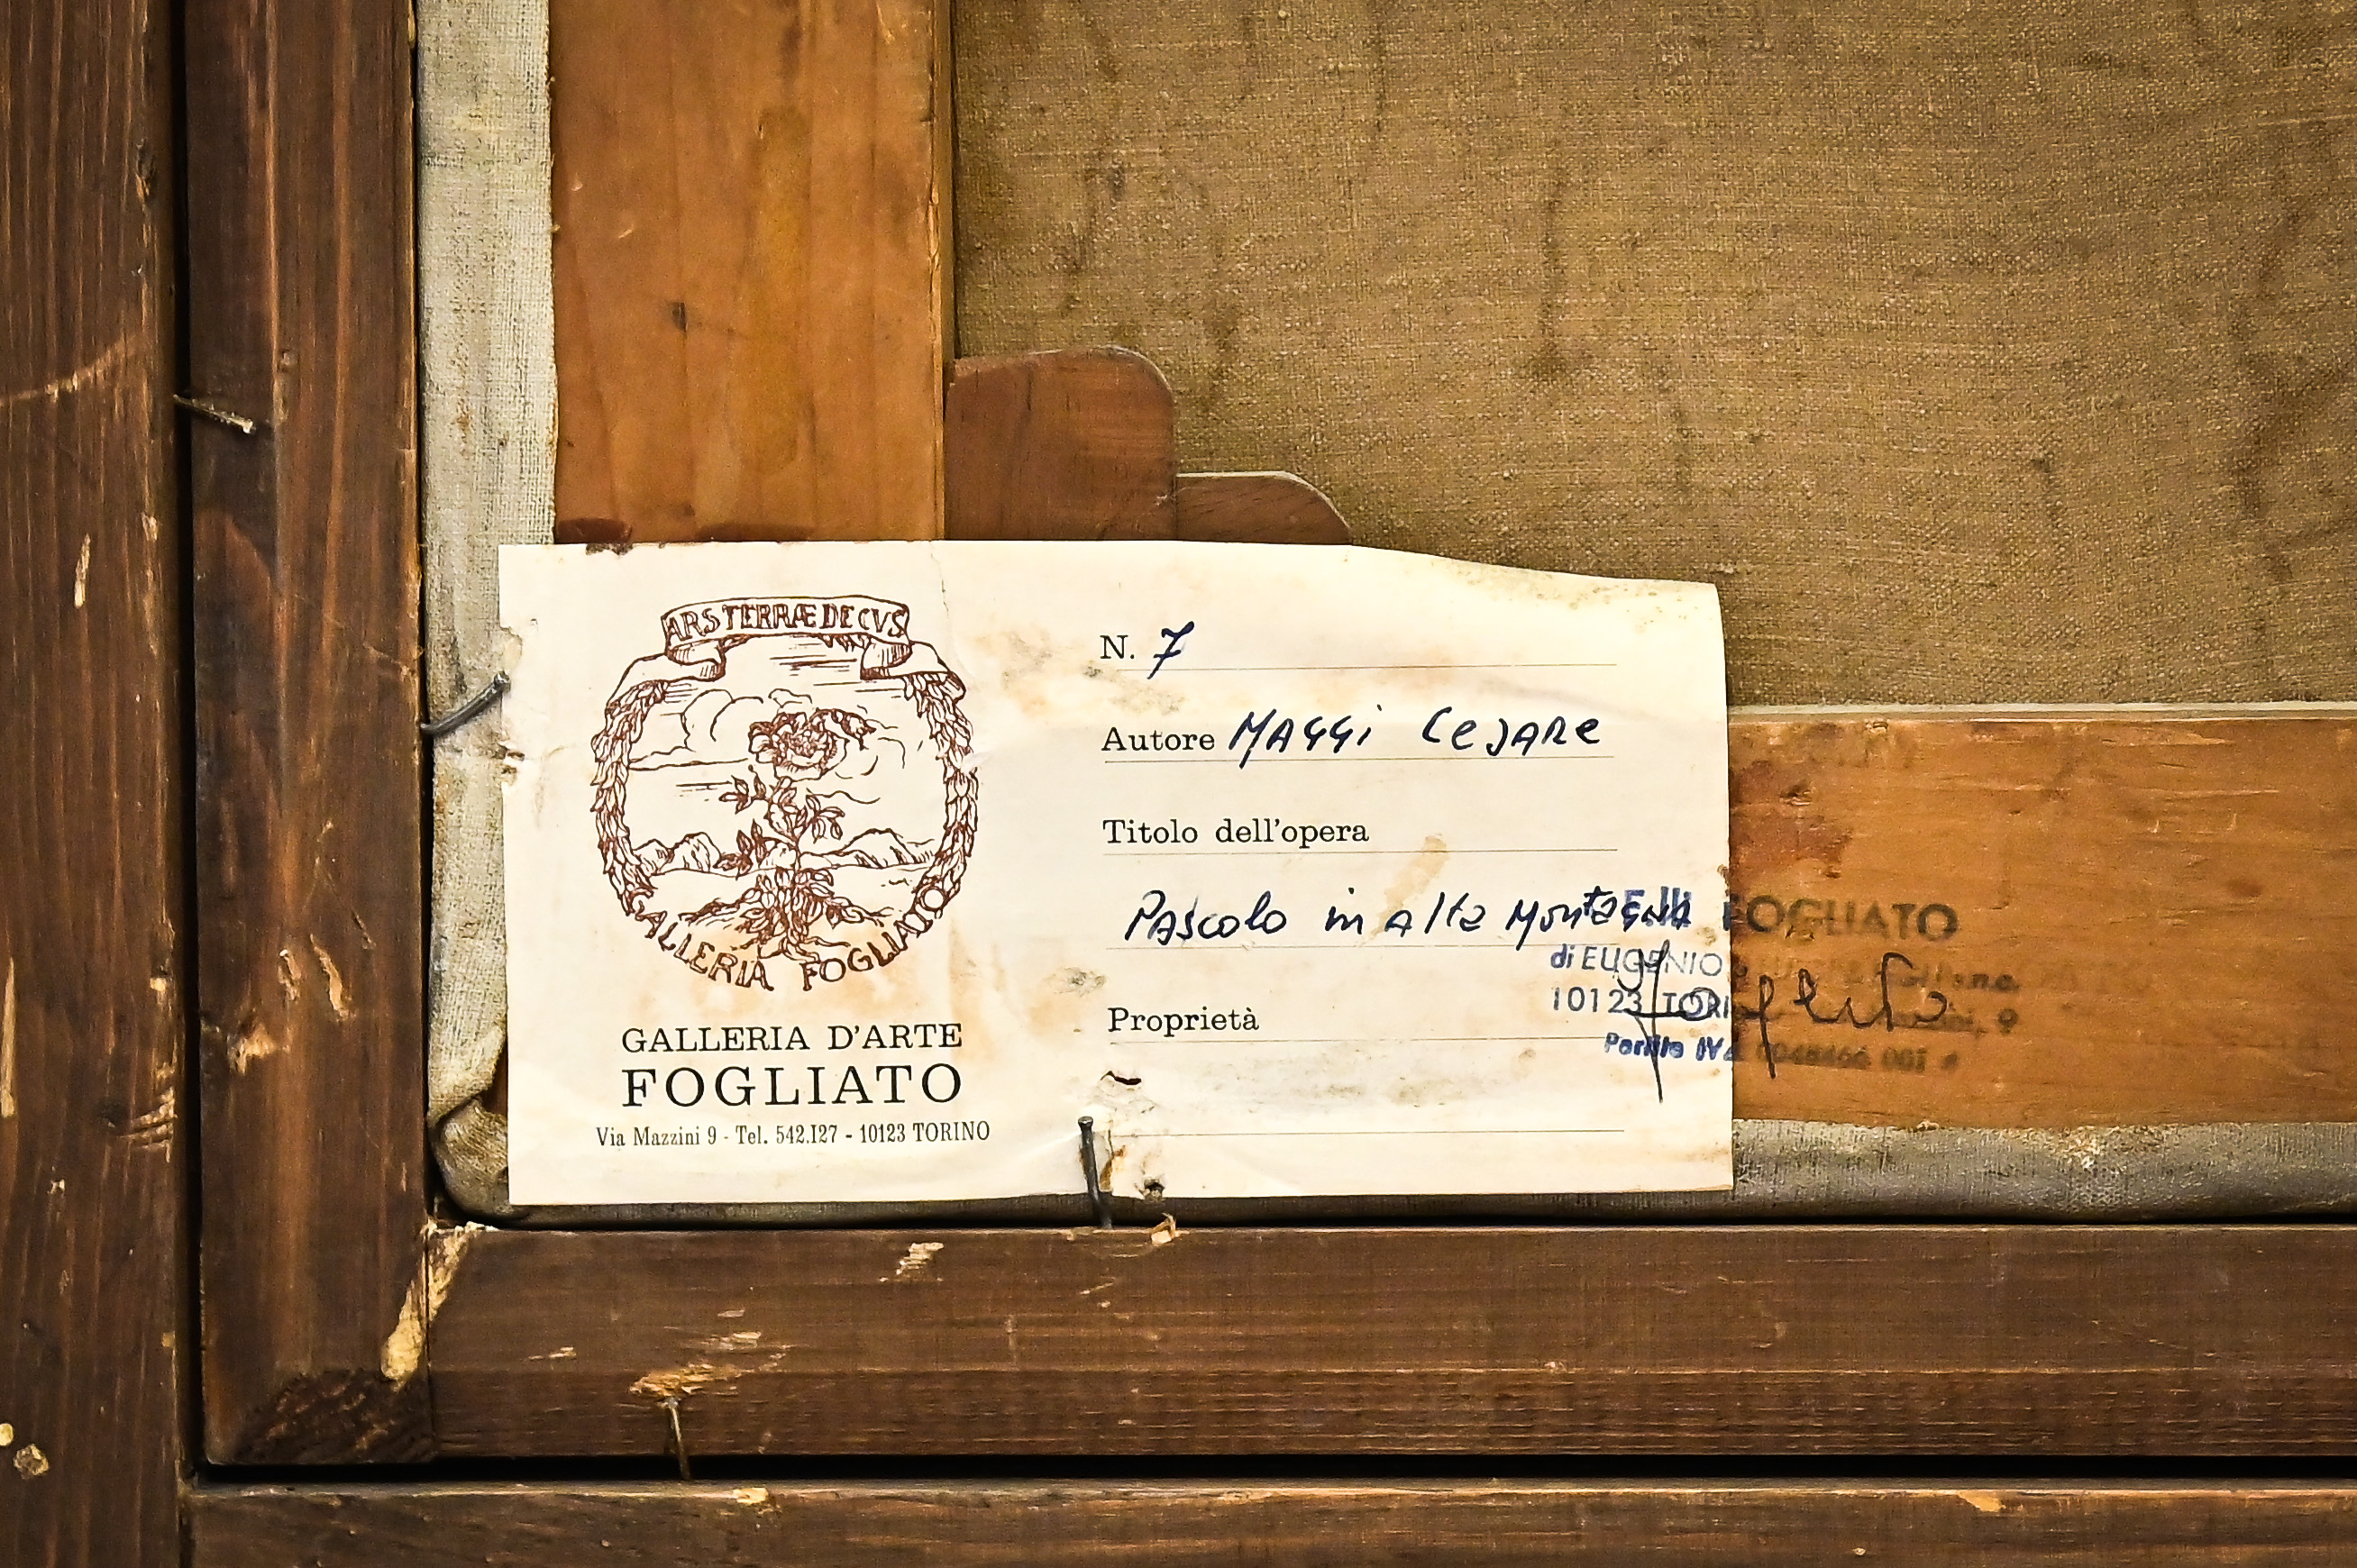 ARS TERRÆ DECVS
GALLERIA FOGLIATO
GALLERIA D'ARTE
FOGLIATO
Via Mazzini 9 - Tel. 542.127 - 10123 TORINO
N. 7
Autore Maggi Cesare
Titolo dell'opera
Pascolo in alta montagna
Proprietà
F.lli FOGLIATO
di EUGENIO
10123 TORI
Partita IVA
Fogliato